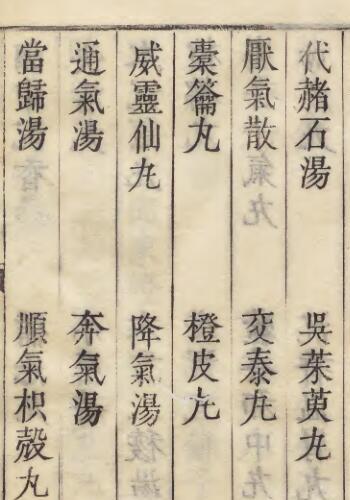 代赭石湯 吳茱萸丸
厭氣散 交泰丸
橐籥丸 橙皮丸
威靈仙丸 降氣湯
通氣湯 奔氣湯
當歸湯 順氣枳殼丸